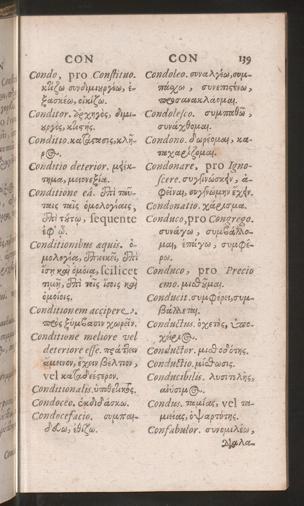 CON
CON
139
Condo, pro Constituo.
κτίζω συνδημιουργέω, ἐ-
ξασκέω, οἰκίζω.
Conditor. ἀρχηγὸς, δημι-
ουργὸς, κτίστης.
Conditio. κατάστασις, κλῆ-
ρος.
Conditio deterior. μεί-
τημα, μειονεξία.
Conditione ea. ἐπὶ ταύ-
ταις ταῖς ὁμολογίαις,
ἐπὶ τούτῳ, sequente
ἐφ' ᾧ.
Conditionibus aquis. ὁ-
μολογία, ἐπιεικεῖ, ἐπὶ
ἴσῃ καὶ ὁμοίᾳ, scilicet
τιμῇ, ἐπὶ τοῖς ἴσοις καὶ
ὁμοίοις.
Conditionem accipere.
πρὸς ξύμβασιν χωρεῖν.
Conditione meliore vel
deteriore esse.
ἄμεινον, ἔχειν βέλτιον,
vel καταδεέστερον.
Conditionalis. ὑποθετικός.
Condoceo. ἐκδιδάσκω.
Condocefacio. συμπαι-
δεύω, ἐθίζω.
Condoleo. συναλγέω, συμ-
πάσχω, συνεπιστένω,
προσανακλάομαι.
Condolesco. συμπαθῶ,
συνάχθομαι.
Condono. δωρέομαι, κα-
ταχαρίζομαι.
Condonare, pro Igno-
scere. συγγινώσκειν, ἀ-
φιέναι, συγγνώμην ἔχειν.
Condonatio. χάρισμα.
Conduco, pro Congrego.
συνάγω, συμβάλλο-
μαι, ἐπάγω, συμφέ-
ρω.
Conduco, pro Precio
emo. μισθοῦμαι.
Conducit. συμφέρει, συμ-
βάλλεται.
Conductus. ὀχετὸς, ὑπό-
Conductor. μισθοδότης.
Conductio. μίσθωσις.
Conducibilis. λυσιτελὴς,
Condus. ταμίας, vel τα-
μιείας, ὀψαρτύτης.
Confabulor. συνομιλέω,
διαλα-